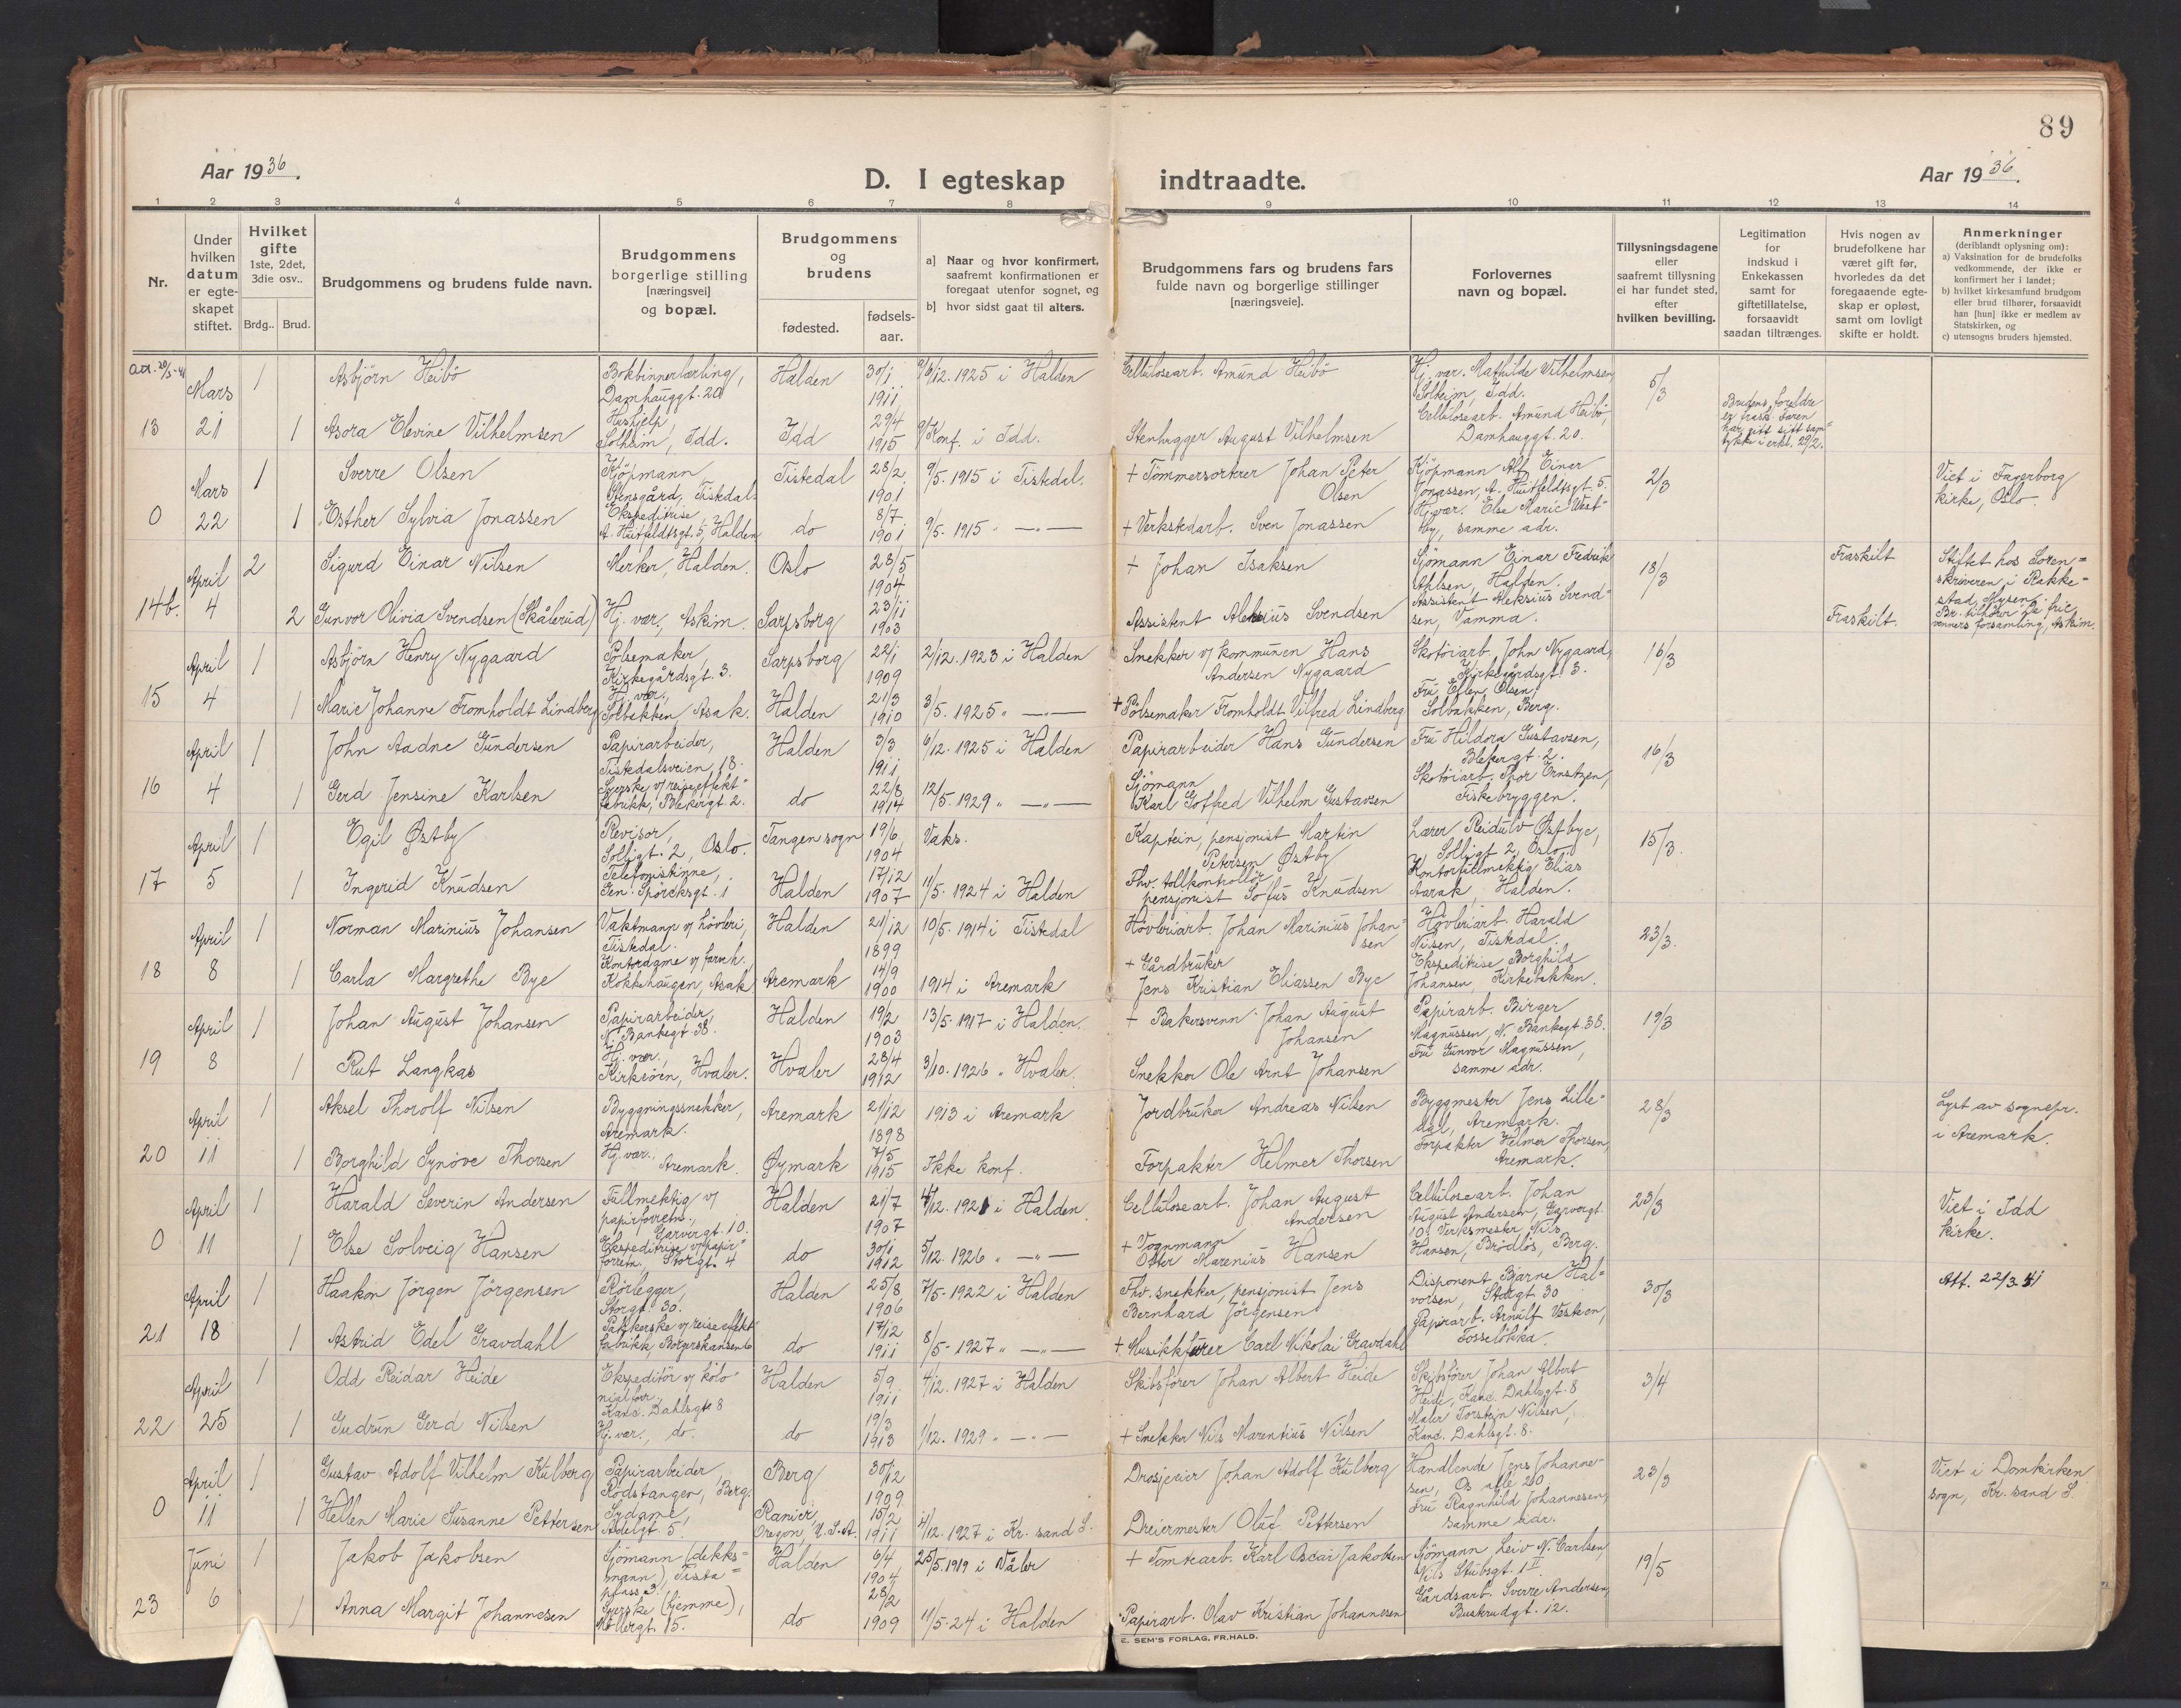 89
Aar 1936.
D. I egteskap indtraadte.
Aar 1936.
1 2 3 4 5 6 7 8 9 10 11 12 13 14
Nr.
Under hvilken datum er egte-skapet stiftet.
Hvilket gifte 1ste, 2det, 3die osv..
Brdg.. Brud.
Brudgommens og brudens fulde navn.
Brudgommens borgerlige stilling [næringsvei] og bopæl.
Brudgommens og brudens
fødested.
fødsels-aar.
a] Naar og hvor konfirmert, saafremt konfirmationen er foregaat utenfor sognet, og
b] hvor sidst gaat til alters.
Brudgommens fars og brudens fars fulde navn og borgerlige stillinger [næringsveie].
Forlovernes navn og bopæl.
Tillysningsdagene eller saafremt tillysning ei har fundet sted, efter hvilken bevilling.
Legitimation for indskud i Enkekassen samt for giftetillatelse, forsaavidt saadan tiltrænges.
Hvis nogen av brudefolkene har været gift før, hvorledes da det foregaaende egte-skap er opløst, samt om lovligt skifte er holdt.
Anmerkninger (deriblandt oplysning om):
a) Vaksination for de brudefolks vedkommende, der ikke er konfirmert her i landet;
b) hvilket kirkesamfund brudgom eller brud tilhører, forsaavidt han [hun] ikke er medlem av Statskirken, og
c) utensogns bruders hjemsted.
Mars 1 Asbjørn Heibö Bokbinnerlærling, Damhauggt. 20 Halden 30/1 1911 6/12. 1925 i Halden Cellulosearb. Amund Heibö Hj. vær. Mathilde Vilhelmsen, Solheim, Idd. 5/3
13 21 1 Asora Elevine Vilhelmsen Hushjelp Solheim, Idd. Idd 29/4 1915 Konf. i Idd. Stenhugger August Vilhelmsen Cellulosearb. Amund Heibö, Damhauggt. 20. Brudens foreldre er frask. Faren har gitt sitt sam-tykke i erkl. 29/2.
Mars 1 Sverre Olsen Kjöpmann Stensgård, Tistedal. Tistedal 28/2 1901 9/5. 1915 i Tistedal. + Tömmersorterer Johan Peter Olsen Kjöpmann Alf Einar Jonassen, A. Huitfeldtsgt. 5. 2/3 Viet i Fagerborg kirke, Oslo.
0 22 1 Esther Sylvia Jonassen Ekspeditrise, A. Huitfeldtsgt. 5, Halden do 8/7 1901 9/5. 1915 " — " — + Verkstedarb. Sven Jonassen Hj.vær. Else Marie Westby, samme adr.
April 2 Sigurd Einar Nilsen Merker, Halden. Oslo 28/5 1904 + Johan Isaksen Sjömann Einar Fredrik Ahlsen, Halden. 18/3 Fraskilt Stiftet hos Soren-skriveren i Rakke-stad, Mysen.
14b. 4 2 Gunvor Olivia Svendsen (Skålerud) Hj. vær., Askim. Sarpsborg 23/11 1903 Assistent Aleksius Svendsen Assistent Aleksius Svend-sen, Vamma. Fraskilt. Br. tilhører De frie venners forsamling, Askim.
April 1 Asbjörn Henry Nygaard Pölsemaker, Kirkegårdsgt. 3. Sarpsborg 22/1 1909 2/12. 1923 i Halden Snekker v/ kommunen Hans Andersen Nygaard Skotöiarb. John Nygaard, Kirkegårdsgt. 3. 16/3
15 4 1 Marie Johanne Fromholdt Lindberg Hj. vær., Solbakken, Asak. Halden 21/3 1910 3/5. 1925 " — " — + Pölsemaker Fromholdt Vilfred Lindberg Fru Ellen Olsen, Solbakken, Berg.
April 1 John Aadne Gundersen Papirarbeider, Tistedalsveien 18. Halden 3/3 1911 6/12. 1925 i Halden Papirarbeider Hans Gundersen Fru Hildora Gustavsen, Blekergt. 2. 16/3
16 4 1 Gerd Jensine Karlsen Syerske v/ reiseeffekt-fabrikk, Blekergt. 2. do 22/8 1914 12/5. 1929 " — " — Sjömann Karl Gotfred Vilhelm Gustavsen Skotöiarb. Thor Ernstzen, Fiskebryggen.
April 1 Egil Østby Revisor, Solligt. 2, Oslo. Tangen sogn 19/6 1904 Vaks. Kaptein, pensjonist Martin Petersen Østby Lærer Reidulv Østbye, Solligt 2, Oslo. 15/3.
17 5 1 Ingerid Knudsen Telefonistinne, Gen. Spörcksgt. 1 Halden 17/12 1907 11/5. 1924 i Halden Fhv. tollkontrollör, pensjonist Sofus Knudsen Kontorfullmektig Elias Aarak, Halden.
April 1 Norman Marinius Johansen Vaktmann v/ hövleri, Tistedal. Halden 21/12 1899 10/5. 1914 i Tistedal Hövleriarb. Johan Marinius Johan-sen Hövleriarb. Harald Nilsen, Tistedal. 23/3.
18 8 1 Carla Margrethe Bye Kontordame v/ farveh. Kokkehaugen, Asak Aremark 14/9 1900 1914 i Aremark + Gårdbruker Jens Kristian Eliassen Bye Ekspeditrise Borghild Johansen, Kirkebakken.
April 1 Johan August Johansen Papirarbeider, N. Bankegt 38. Halden 19/2 1903 13/5. 1917 i Halden. + Bakersvenn Johan August Johansen Papirarb. Birger Magnussen, N. Bankegt. 38. 19/3
19 8 1 Rut Langkas Hj. vær., Kirkeöen, Hvaler. Hvaler 28/4 1912 3/10. 1926 " Hvaler. Snekker Ole Arnt Johansen Fru Gunvor Magnussen, samme adr.
April 1 Aksel Thorolf Nilsen Byggningssnekker, Aremark. Aremark 21/12 1898 1913 i Aremark Jordbruker Andreas Nilsen Byggmester Jens Lille-dal, Aremark. 28/3 Lyst av sognepr. i Aremark.
20 11 1 Borghild Synöve Thorsen Hj. vær., Aremark. Øymark 7/5 1915 Ikke konf. Forpakter Helmer Thorsen Forpakter Helmer Thorsen, Aremark.
April 1 Harald Severin Andersen Fullmektig v/ papirforretn., Garvergt. 10. Halden 21/7 1907 4/12. 1921 i Halden Cellulosearb. Johan August Andersen Cellulosearb. Johan August Andersen, Garvergt. 10. 23/3 Viet i Idd kirke.
0 11 1 Else Solveig Hansen Ekspeditrise v/ papir-forretn., Storgt. 4 do 30/1 1912 5/12. 1926 " — " — + Vognmann Marenius Hansen Verksmester Nils Hansen, Brödlös, Berg.
April 1 Haakon Jörgen Jörgensen Rörlegger, Storgt. 30. Halden 25/8 1906 7/5. 1922 i Halden Fhv. snekker, pensjonist Jens Bernhard Jörgensen Disponent Bjarne Hal-vorsen, Storgt 30 30/3 Att. 22/3 41
21 18 1 Astrid Edel Gravdahl Pakkerske v/ reiseeffekt fabrikk, Borgerskansen 6 do 17/12 1911 8/5. 1927 " — " — + Musikkfører Carl Nikolai Gravdahl Papirarb. Arnulf Fosselökka.
April 1 Odd Reidar Heide Ekspeditör v/ kolo-nialforr., Kand. Dahlsgt 8 Halden 5/9 1911 4/12. 1927 i Halden Skibsförer Johan Albert Heide Skibsförer Johan Albert Heide, Kand. Dahlsgt. 8 3/4
22 25 1 Gudrun Gerd Nilsen Hj. vær., do. do 19/3 1913 1/12. 1929 " — " — + Snekker Nils Marentius Nilsen Maler Torstein Nilsen, Kand. Dahlsgt. 8.
April 1 Gustav Adolf Vilhelm Kulberg Papirarbeider, Rödstangen, Berg. Berg 30/12 1909 Drosjeeier Johan Adolf Kulberg Handlende Jens Johanne-sen, Os allé 20 23/3 Viet i Domkirken sogn, Kr. sand S.
0 11 1 Hellen Marie Susanne Pettersen Sydame, Adelgt 5. Ranier, Oregon, U.S.A. 15/2 1911 4/12. 1927 i Kr. sand S. Dreiermester Oluf Pettersen Fru Ragnhild Johannesen, samme adr.
Juni 1 Jakob Jakobsen Sjömann (dekks-mann), Tista-plass 3. Halden 6/4 1904 25/5. 1919 i Våler + Tomtearb. Karl Oscar Jakobsen Sjömann Leiv N. Carlsen, Nils Stubsgt. 1 II 19/5
23 6 1 Anna Margit Johannesen Syerske (hjemme), Möllergt. 15. do 28/2 1909 11/5. 24 i Halden Papirarb. Olav Kristian Johannesen Gårdsarb. Sverre Andersen, Buskrudgt. 12.
E. SEM'S FORLAG, FR.HALD.